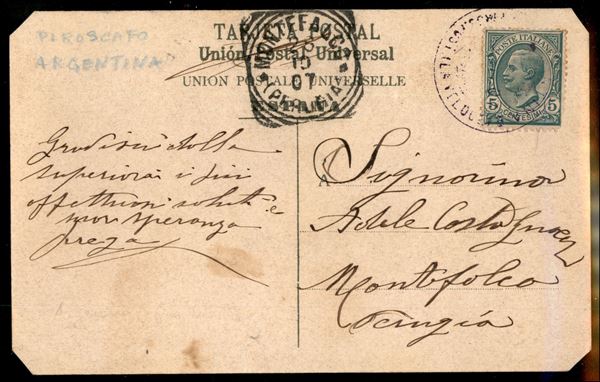 PIROSCAFO
ARGENTINA
TARJETA POSTAL
Unión Postal Universal
UNION POSTALE UNIVERSELLE
ESPAÑA
MONTEFALCO
10
07
(PERUGIA)
POSTE ITALIANE
5 CENTESIMI 5
Gradisci dalla
superiora i più
affettuosi saluti e
suor Speranza
prega
A Signorina
Adele
Montefalco
Perugia